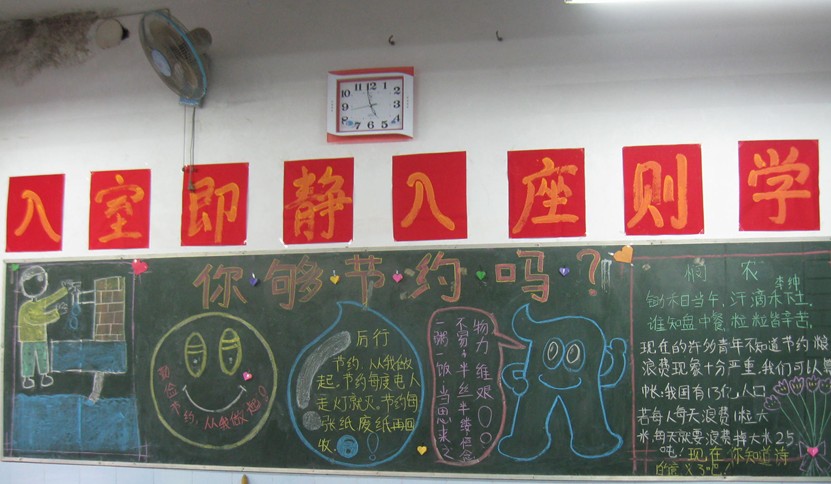 入室即静入座则学
你够节约吗?
勤俭节约,从我做起!
厉行
节约,从我做
起。节约每度电人
走灯就灭。节约每
张纸废纸再回
收。
物力维艰
不易,半丝半缕,恒念
一粥一饭,当思来之
悯农
李绅
锄禾日当午,汗滴禾下土,
谁知盘中餐,粒粒皆辛苦,
现在的许多青年不知道节约粮
浪费现象十分严重,我们可以算
帐:我国有13亿人口
若每人每天浪费1粒大
米,每天就要浪费掉大米25
吨!现在你知道诗